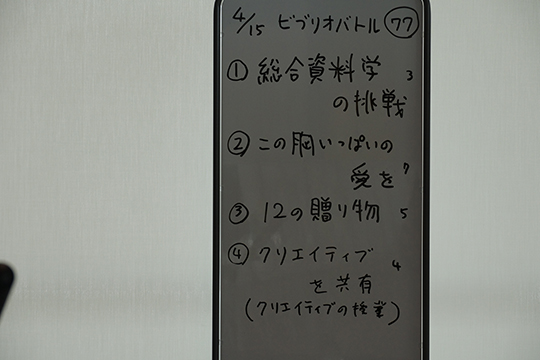 4/15 ビブリオバトル 77
① 総合資料学 3
の挑戦
② この胸いっぱいの
愛を 7
③ 12の贈り物 5
④ クリエイティブ 4
を共有
(クリエイティブの授業)